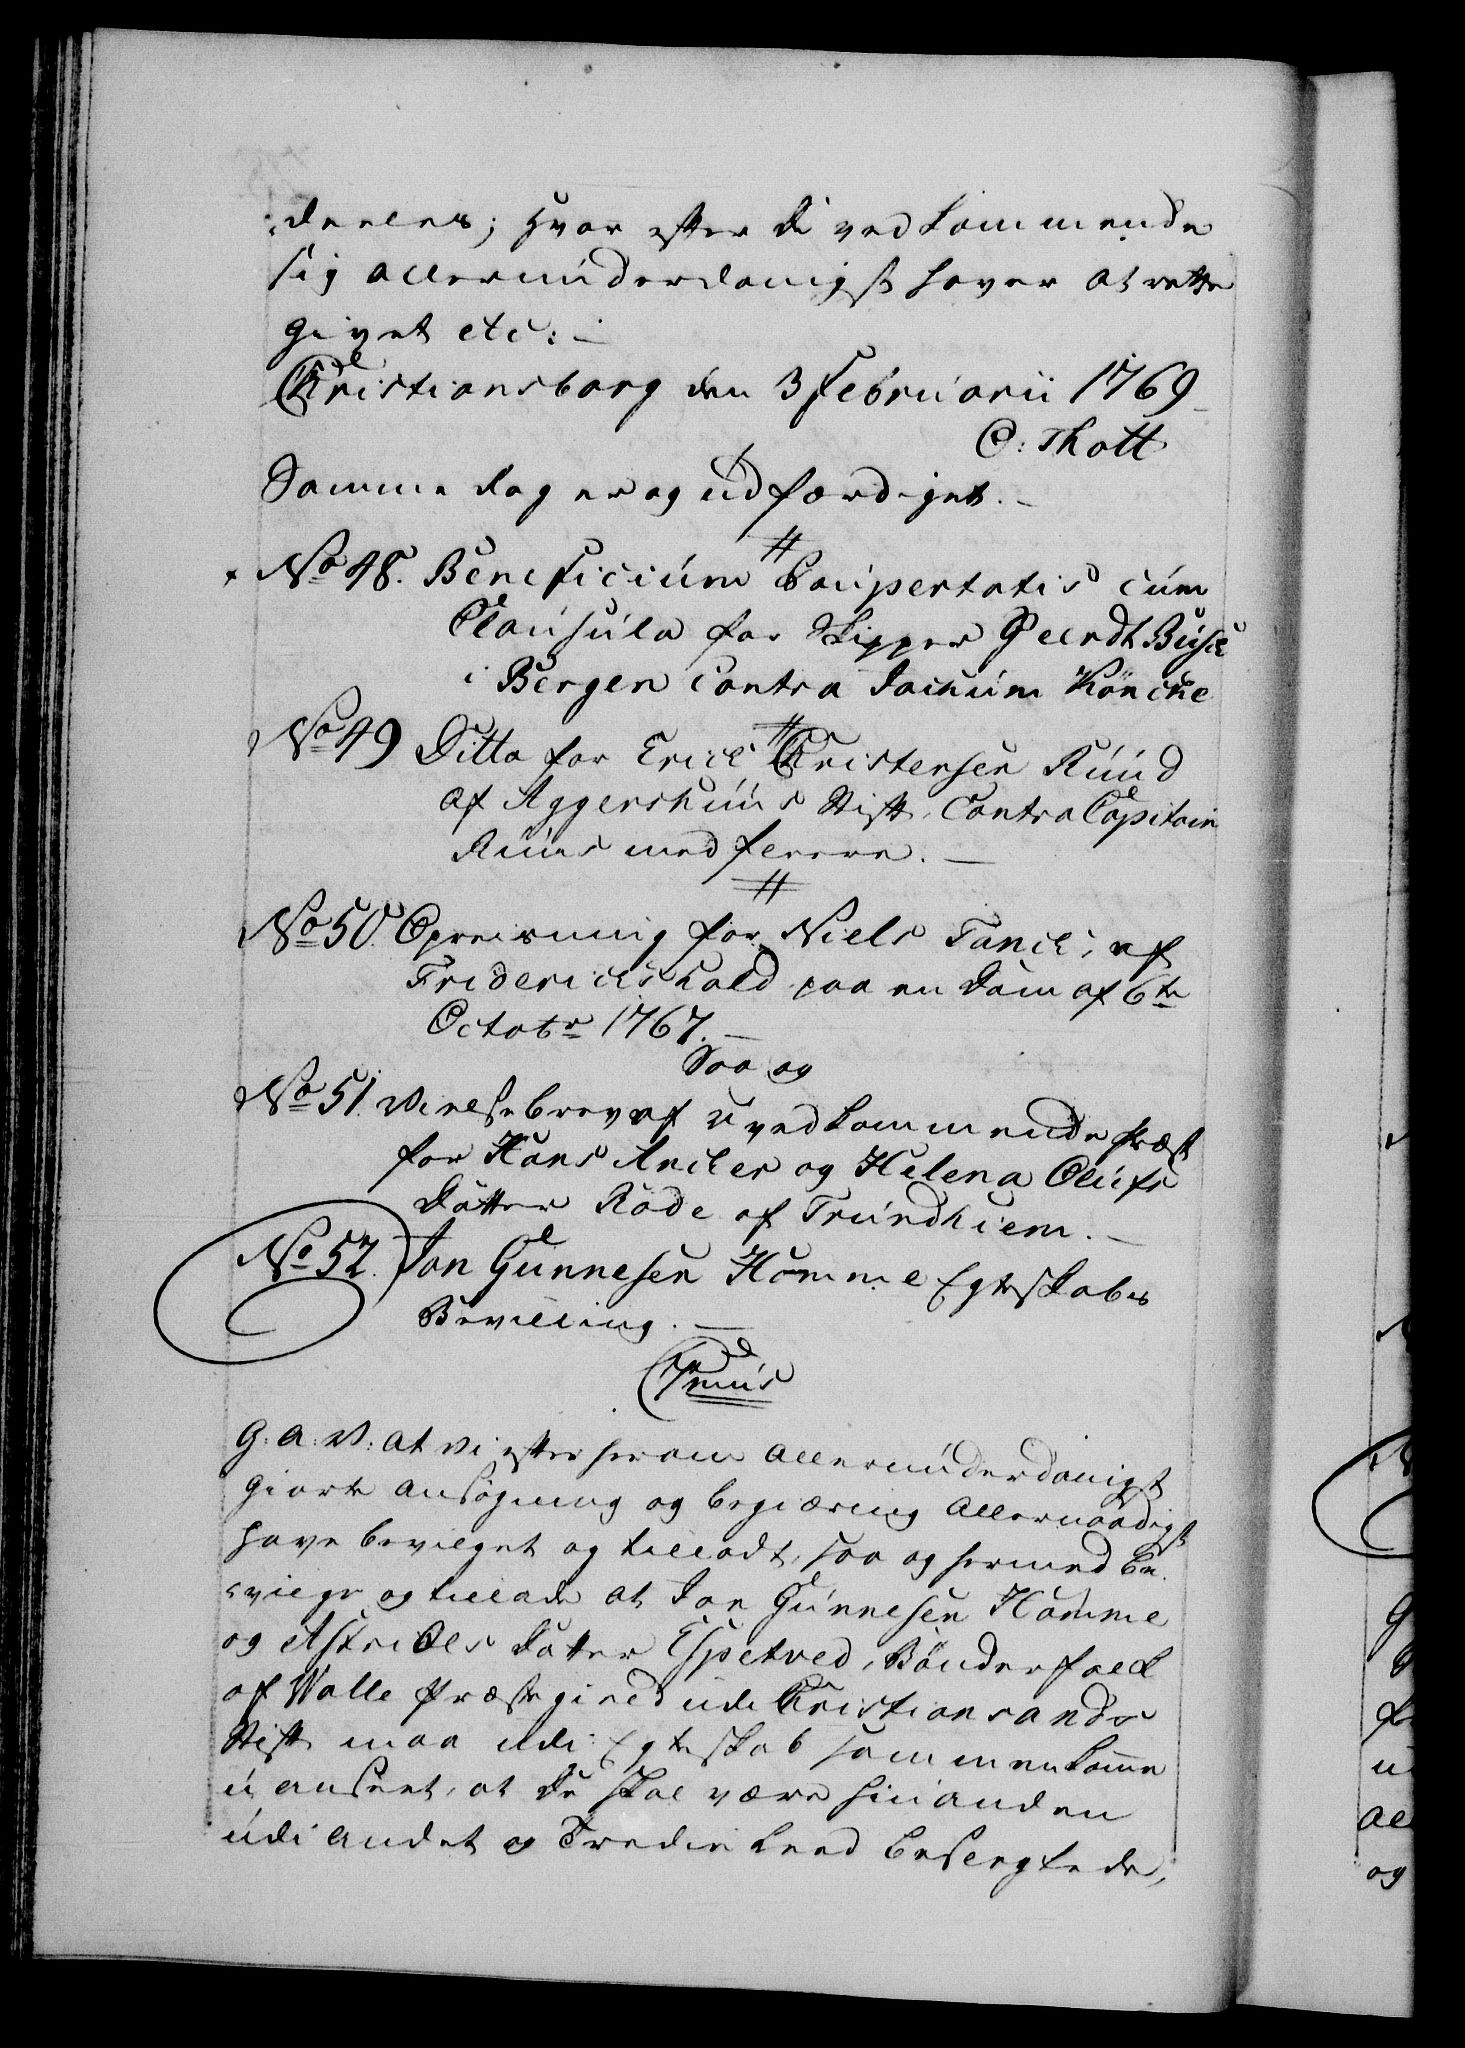 deeles; hvor efter de ved kommende
sig allerunderdanigst haver at rette
givet etc:
Christiansborg den 3 Februarii 1769
O: Thott
Samme dag er og udfærdiget.
No 48. Beneficium Paupertatis cum
Clausula for Skipper Geerdt Busch
i Bergen contra Jochum Köncke
No 49 Ditto for Erich Christensen Ruud
af Aggershuus Stift, Contra Capitain
Ruus med fleere.
No 50. Opreisning for Niels Tanck, af
Friderichshald paa en Dom af 6te
Octobr 1767.
Saa og
No 51. Vielsebrev af uvedkommende Præst
for Hans Ancker og Helena Olufs
Datter Röde af Trundhiem.
No 52. Jon Gunnesen Homme Egteskabs
Bevilling.
G: A: V: at Vi efter herom allerunderdanigst
giorte ansögning og begiæring allernaadigst
have bevilget og tilladt, saa og hermed be-
vilge og tillade at Jon Gunnesen Homme
og Astri Ols Datter Espetved, Bönderfolk
af Walle Præstegield udi Christiansands
Stift maa udi Egteskab sammenkomme
uanseet, at de skal være hinanden
udi andet og Tredie Leed beslegtede,